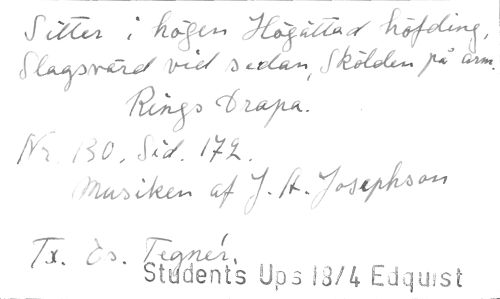 Sitter i högen Högättad höfding,
Slagsvärd vid sidan, Skölden på arm.
Rings Drapa.
Nr. 130. Sid. 172.
Musiken af J. A. Josephson
Tx. Es. Tegnér.
Students Ups 18/4 Edquist